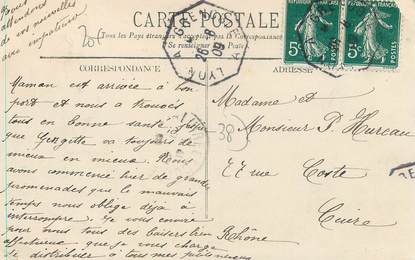 Nous
attendons
de vos nouvelles
avec impatience
CARTE POSTALE
Tous les Pays étrangers n'acceptent pas
Se renseigner
CORRESPONDANCE
ADRESSE
GRENOBLE A LYON
26-8
09
5c
5c
38
Maman est arrivée à bon
port et nous a trouvés
tous en bonne santé
que Georgette va toujours de
mieux en mieux. Nous
avons commencé hier de grandes
promenades que le mauvais
temps nous oblige déjà à
interrompre. Je vous envoie
pour nous tous des baisers bien
affectueux que je vous charge
de distribuer à tous mes
Madame et
Monsieur P. Hureau
77 rue Coste
Cuire
Rhône